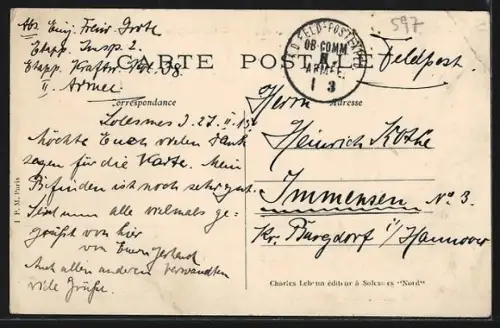 Abs. Einj. Freiw. Grote
Etapp. Insp. 2.
Etapp. Kraftw. 38.
II. Armee
597
CARTE POSTALE
K.D. FELD-POSTEXP.
OB-COMM
II
ARMEE
1 3
Feldpost.
Correspondance
Adresse
Solesmes d. 27. II. 15.
Möchte Euch vielen Dank
sagen für die Karte. Mein
Befinden ist noch sehr gut.
Seid nun alle vielmals ge-
grüßt von hier
von Euern
Auch allen anderen Verwandten
viele Grüße.
Herrn
Heinrich Köthe
Immensen No 3.
Kr. Burgdorf i/Hannover
I P. M. Paris
Charles Lebrun éditeur à Solesmes "Nord"